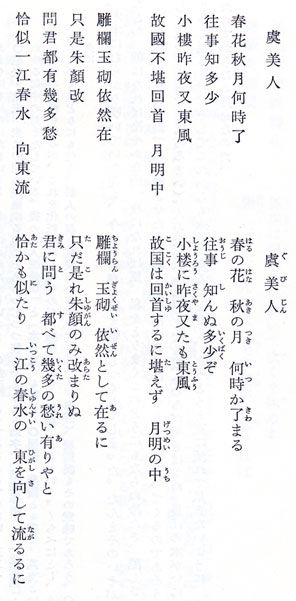 虞美人
春花秋月何時了
往事知多少
小樓昨夜又東風
故國不堪回首 月明中
雕欄玉砌依然在
只是朱顏改
問君都有幾多愁
恰似一江春水 向東流
虞美人
春の花 秋の月 何時か了まる
往事 知んぬ多少ぞ
小楼に昨夜又たも東風
故国は回首するに堪えず 月明の中
雕欄 玉砌 依然として在るに
只だ是れ朱顔のみ改まりぬ
君に問う 都べて幾多の愁い有りやと
恰かも似たり 一江の春水の 東を向して流るるに